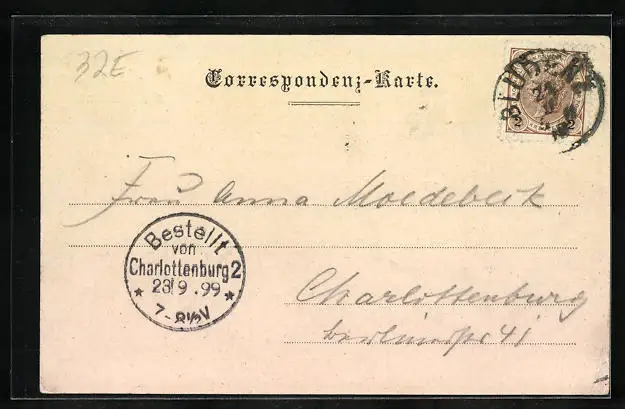 32E
Correspondenz-Karte.
BLUDENZ
2 2
Frau Anna Moedebeck
Bestellt
von
Charlottenburg 2
23/9.99
7-8½V
Charlottenburg
Berlinerstr 41